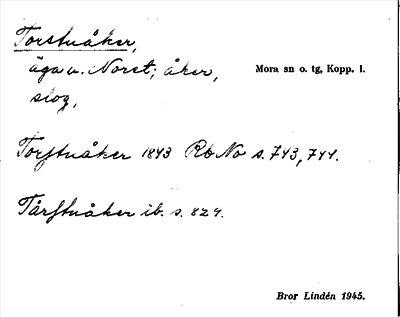 Torstuåker,
äga u. Noret; åker, Mora sn o. tg, Kopp. l.
slog,
Torstuåker 1843 Rb No s. 743, 744.
Tårstuåker ib. s. 824.
Bror Lindén 1945.